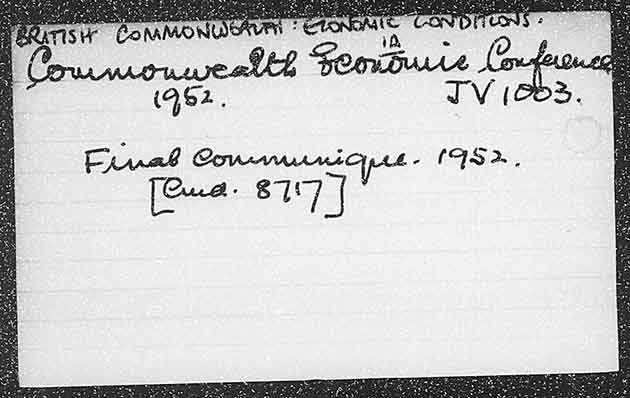 BRITISH COMMONWEALTH : ECONOMIC CONDITIONS.
IA
Commonwealth Economic Conference
1952. JV 1003.
Final Communique. 1952.
[Cmd. 8717]